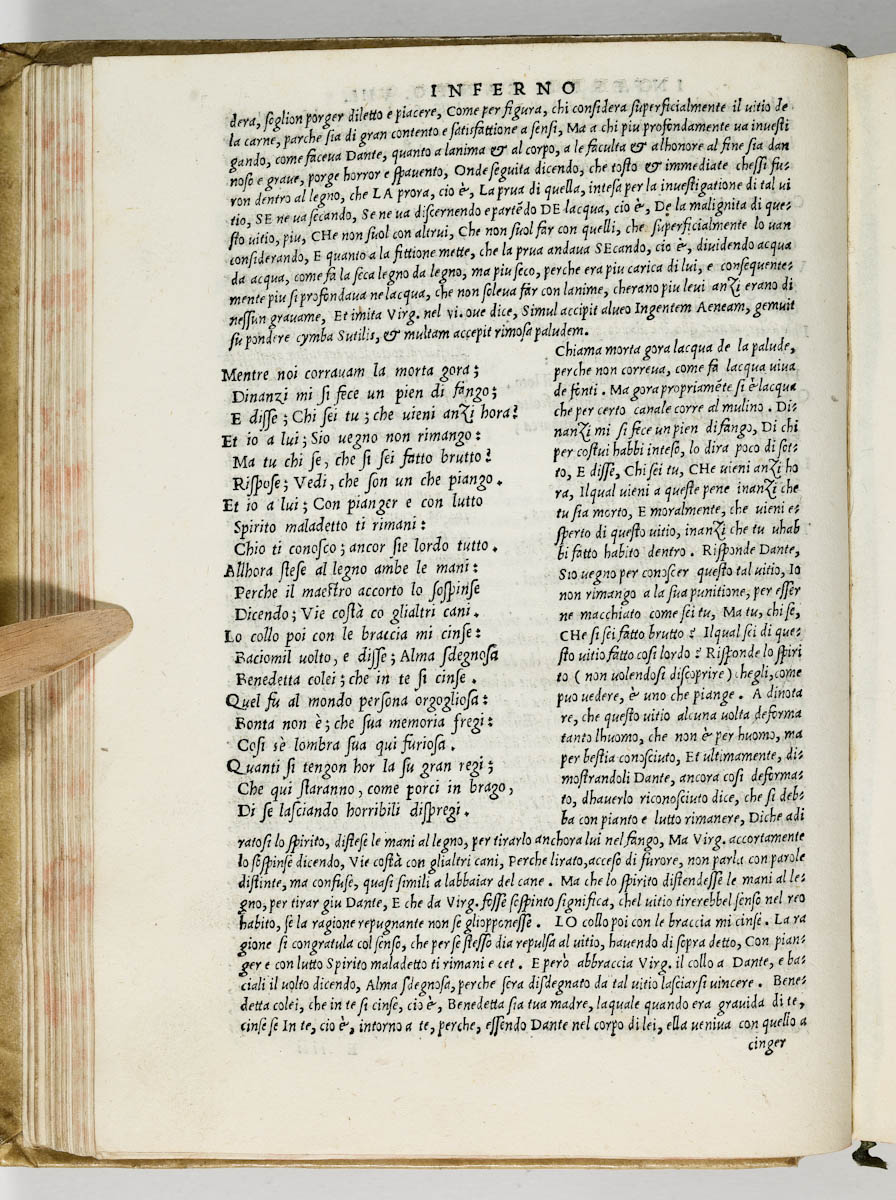 INFERNO
dera, soglion porger diletto e piacere, Come per figura, chi considera superficialmente il uitio de
la carne, parche sia di gran contento e satisfattione a sensi, Ma a chi piu profondamente ua inuesti
gando, come faceua Dante, quanto a lanima & al corpo, a le faculta & alhonore al fine sia dan
noso e graue, porge horror e spauento, Onde seguita dicendo, che tosto & immediate chessi fu-
ron dentro al legno, che LA prora, cio è, La prua di quella, intesa per la inuestigatione di tal ui
tio, SE ne ua secando, Se ne ua discernendo e partẽdo DE lacqua, cio è, De la malignita di que-
sto uitio, piu, CHe non suol con altrui, Che non suol far con quelli, che superficialmente lo uan
considerando, E quanto a la fittione mette, che la prua andaua SEcando, cio è, diuidendo acqua
da acqua, come fa la seca legno da legno, ma piu seco, perche era piu carica di lui, e consequente-
mente piu si profondaua ne lacqua, che non soleua far con lanime, cherano piu leui anzi erano di
nessun grauame, Et imita Virg. nel vi. oue dice, Simul accipit alueo Ingentem Aeneam, gemuit
su pondere cymba Sutilis, & multam accepit rimosa paludem.
Mentre noi corrauam la morta gora;
Dinanzi mi si fece un pien di fango;
E disse; Chi sei tu; che uieni anzi hora?
Et io a lui; Sio uegno non rimango:
Ma tu chi se, che si sei fatto brutto?
Rispose; Vedi, che son un che piango.
Et io a lui; Con pianger e con lutto
Spirito maladetto ti rimani:
Chio ti conosco; ancor sie lordo tutto.
Allhora stese al legno ambe le mani:
Perche il maestro accorto lo sospinse
Dicendo; Vie costà co glialtri cani.
Lo collo poi con le braccia mi cinse:
Baciomil uolto, e disse; Alma sdegnosa
Benedetta colei; che in te si cinse.
Quel fu al mondo persona orgogliosa:
Bonta non è; che sua memoria fregi:
Cosi sè lombra sua qui furiosa.
Quanti si tengon hor la su gran regi;
Che qui staranno, come porci in brago,
Di se lasciando horribili dispregi.
Chiama morta gora lacqua de la palude,
perche non correua, come fa lacqua uiua
de fonti. Ma gora propriamẽte si è lacqua
che per certo canale corre al mulino. Di-
nanzi mi si fece un pien di fango, Di chi
per costui habbi inteso, lo dira poco di sot-
to, E disse, Chi sei tu, CHe uieni anzi ho
ra, Ilqual uieni a queste pene inanzi che
tu sia morto, E moralmente, che uieni e-
sperto di questo uitio, inanzi che tu uhab
bi fatto habito dentro. Risponde Dante,
Sio uegno per conoscer questo tal uitio, Io
non rimango a la sua punitione, per esser
ne macchiato come sei tu, Ma tu, chi se,
CHe si sei fatto brutto? Ilqual sei di que-
sto uitio fatto cosi lordo? Risponde lo spiri
to (non uolendosi discoprire) chegli, come
puo uedere, è uno che piange. A dinota
re, che questo uitio alcuna uolta deforma
tanto lhuomo, che non è per huomo, ma
per bestia conosciuto, Et ultimamente, di-
mostrandoli Dante, ancora cosi deforma-
to, dhauerlo riconosciuto dice, che si deb-
ba con pianto e lutto rimanere, Diche adi
ratosi lo spirito, distese le mani al legno, per tirarlo anchora lui nel fango, Ma Virg. accortamente
lo sospinse dicendo, Vie costà con glialtri cani, Perche lirato, acceso di furore, non parla con parole
distinte, ma confuse, quasi simili a labbaiar del cane. Ma che lo spirito distendesse le mani al le-
gno, per tirar giu Dante, E che da Virg. fosse sospinto significa, chel uitio tirerebbel senso nel reo
habito, se la ragione repugnante non se glioppenesse. LO collo poi con le braccia mi cinse. La ra
gione si congratula col senso, che per se stesso dia repulsa al uitio, hauendo di sopra detto, Con pian-
ger e con lutto Spirito maladetto ti rimani e cet. E però abbraccia Virg. il collo a Dante, e ba-
ciali il uolto dicendo, Alma sdegnosa, perche sera disdegnato da tal uitio lasciarsi uincere. Bene-
detta colei, che in te si cinse, cio è, Benedetta sia tua madre, laquale quando era grauida di te,
cinse se In te, cio è, intorno a te, perche, essendo Dante nel corpo di lei, ella ueniua con quello a
cinger